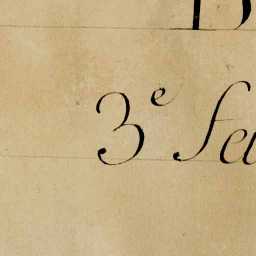 3e feu